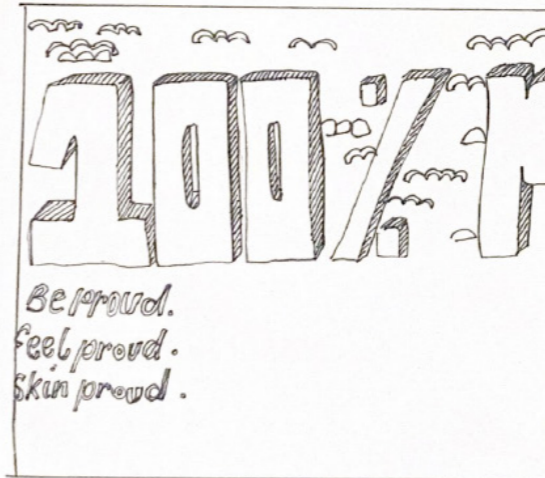 100%
Be proud.
feel proud.
Skin proud.